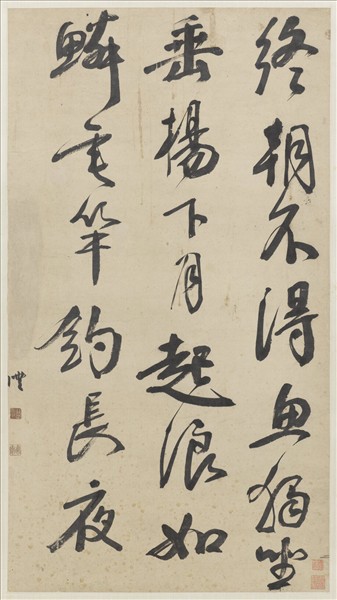 終朝不得魚猶坐
垂楊下月起浪如
鱗竿釣長夜